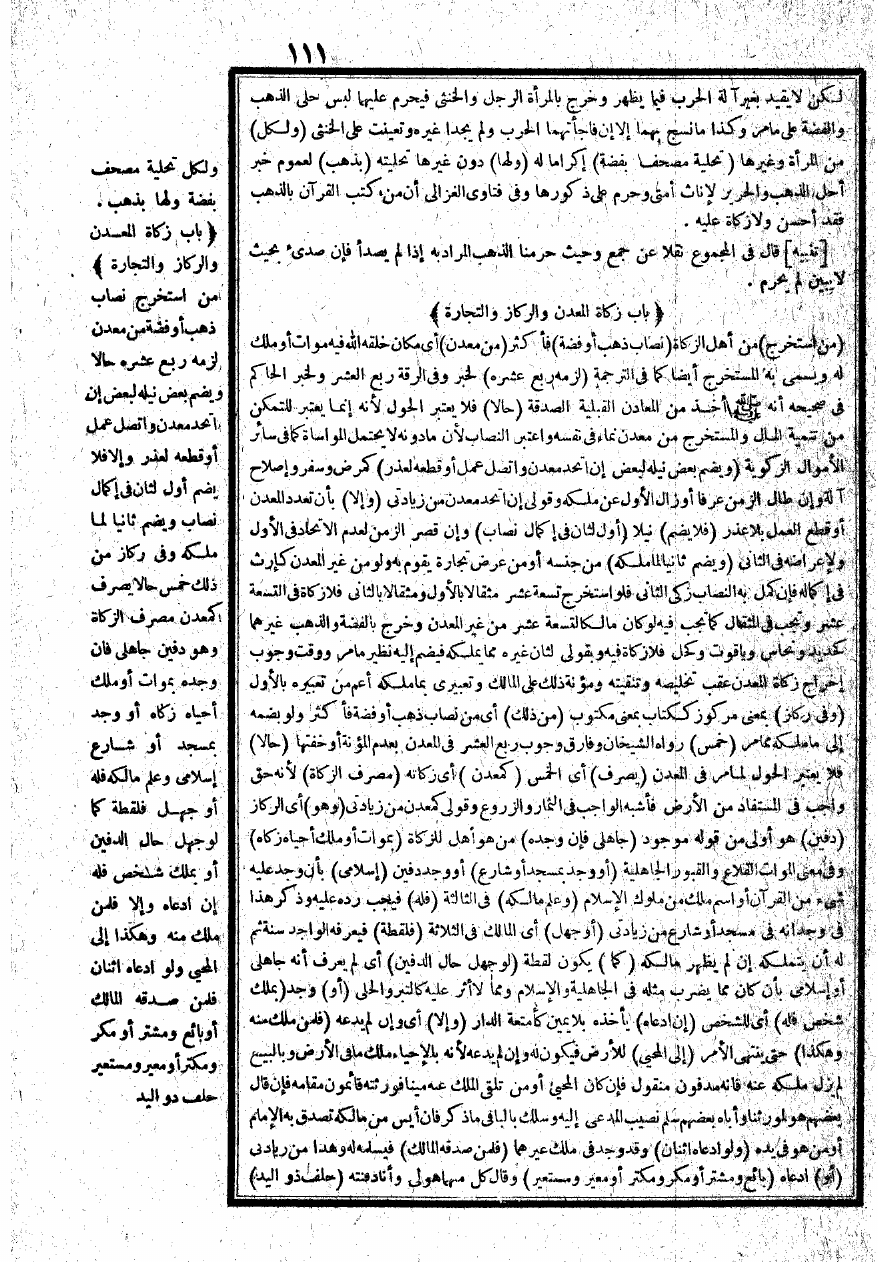 ١١١
لكن لا يقيد بغير آلة الحرب فيما يظهر وخرج بالمرأة الرجل والخنثى فيحرم عليهما لبس حلى الذهب
والفضة على مامر وكذا مانسج بهما إلا إن فاجأتهما الحرب ولم يجدا غيره وتعينت على الخنثى (ولكل)
من المرأة وغيرها (تحلية مصحف بفضة) إكراما له (ولها) دون غيرها تحليته (بذهب) لعموم خبر
أحل الذهب والحرير لإناث أمتى وحرم على ذكورها وفى فتاوى الغزالى أن من كتب القرآن بالذهب
فقد أحسن ولا زكاة عليه .
[تنبيه] قال فى المجموع نقلا عن جمع وحيث حرمنا الذهب المراد به إذا لم يصدأ فإن صدئ بحيث
لا يبين لم يحرم .
﴿ باب زكاة المعدن والركاز والتجارة ﴾
(من استخرج) من أهل الزكاة (نصاب ذهب أو فضة) فأكثر (من معدن) أى مكان خلقه الله فيه موات أو ملك
له ويسمى به المستخرج أيضا كما فى الترجمة (لزمه ربع عشره) لخبر وفى الرقة ربع العشر ولخبر الحاكم
فى صحيحه أنه ﷺ أخذ من المعادن القبلية الصدقة (حالا) فلا يعتبر الحول لأنه إنما يعتبر للتمكن
من تنمية المال والمستخرج من معدن نماء فى نفسه واعتبر النصاب لأن مادونه لا يحتمل المواساة كما فى سائر
الأموال الزكوية (ويضم بعض نيله لبعض إن اتحد معدن واتصل عمل أو قطعه لعذر) كمرض وسفر وإصلاح
آلة وإن طال الزمن عرفا أو زال الأول عن ملكه وقولى إن اتحد معدن من زيادتى (وإلا) بأن تعدد المعدن
أو قطع العمل بلا عذر (فلا يضم) نيلا (أول لثان فى إكمال نصاب) وإن قصر الزمن لعدم الاتحاد فى الأول
ولإعراضه فى الثانى (ويضم ثانيا لما ملكه) من جنسه أو من عرض تجارة يقوم به ولو من غير المعدن كإرث
فى إكماله فإن كمل به النصاب زكى الثانى فلو استخرج تسعة عشر مثقالا بالأول ومثقالا بالثانى فلا زكاة فى التسعة
عشر وتجب فى المثقال كما تجب فيه لو كان مالكا لتسعة عشر من غير المعدن وخرج بالفضة والذهب غيرهما
كحديد ونحاس وياقوت وكحل فلا زكاة فيه وبقولى لثان غيره مما يملكه فيضم إليه نظير مامر ووقت وجوب
إخراج زكاة المعدن عقب تخليصه وتنقيته ومؤنة ذلك على المالك وتعبيرى بما ملكه أعم من تعبيره بالأول
(وفى ركاز) بمعنى مركوز ككتاب بمعنى مكتوب (من ذلك) أى من نصاب ذهب أو فضة فأكثر ولو بضمه
إلى ما ملكه مما مر (خمس) رواه الشيخان وفارق وجوب ربع العشر فى المعدن بعدم المؤنة أو خفتها (حالا)
فلا يعتبر الحول لما مر فى المعدن (يصرف) أى الخمس (كمعدن) أى زكاته (مصرف الزكاة) لأنه حق
واجب فى المستفاد من الأرض فأشبه الواجب فى الثمار والزروع وقولى كمعدن من زيادتى (وهو) أى الركاز
(دفين) هو أولى من قوله موجود (جاهلى فإن وجده) من هو أهل للزكاة (بموات أو ملك أحياه زكاه)
وفى معنى الموات القلاع والقبور الجاهلية (أو وجد بمسجد أو شارع) أو وجد دفين (إسلامى) بأن وجد عليه
شىء من القرآن أو اسم ملك من ملوك الإسلام (وعلم مالكه) فى الثالثة (فله) فيجب رده عليه وذكر هذا
فى وجدانه فى مسجد أو شارع من زيادتى (أو جهل) أى المالك فى الثلاثة (فلقطة) فيعرفه الواجد سنة ثم
له أن يتملكه إن لم يظهر مالكه (كما) يكون لقطة (لو جهل حال الدفين) أى لم يعرف أنه جاهلى
أو إسلامى بأن كان مما يضرب مثله فى الجاهلية والإسلام ومما لا أثر عليه كالتبر والحلى (أو) وجد (بملك
شخص فله) أى للشخص (إن ادعاه) يأخذه بلا يمين كأمتعة الدار (وإلا) أى وإن لم يدعه (فلمن ملك منه
وهكذا) حتى ينتهى الأمر (إلى المحيى) للأرض فيكون له وإن لم يدعه لأنه بالإحياء ملك مافى الأرض وبالبيع
لم يزل ملكه عنه فانه مدفون منقول فإن كان المحيى أو من تلقى الملك عنه ميتا فورثته قائمون مقامه فإن قال
بعضهم هو لمورثنا وأباه بعضهم سلم نصيب المدعى إليه وسلك بالباقى ماذكر فان أيس من مالكه تصدق به الإمام
أو من هو فى يده (ولو ادعاه اثنان) وقد وجد فى ملك غيرهما (فلمن صدقه المالك) فيسلمه له وهذا من زيادتى
(أو) ادعاه (بائع ومشتر أو مكر ومكتر أو معير ومستعير) وقال كل منهما هو لى وأنا دفنته (حلف ذو اليد)
ولكل تحلية مصحف
بفضة ولها بذهب .
﴿ باب زكاة المعدن
والركاز والتجارة ﴾
من استخرج نصاب
ذهب أو فضة من معدن
لزمه ربع عشره حالا
ويضم بعض نيله لبعض إن
اتحد معدن واتصل عمل
أو قطعه لعذر وإلا فلا
يضم أول لثان فى إكمال
نصاب ويضم ثانيا لما
ملكه وفى ركاز من
ذلك خمس حالا يصرف
كمعدن مصرف الزكاة
وهو دفين جاهلى فان
وجده بموات أو ملك
أحياه زكاه أو وجد
بمسجد أو شارع
إسلامى وعلم مالكه فله
أو جهل فلقطة كما
لو جهل حال الدفين
أو بملك شخص فله
إن ادعاه وإلا فلمن
ملك منه وهكذا إلى
المحيى ولو ادعاه اثنان
فلمن صدقه المالك
أو بائع ومشتر أو مكر
ومكتر أو معير ومستعير
حلف ذو اليد